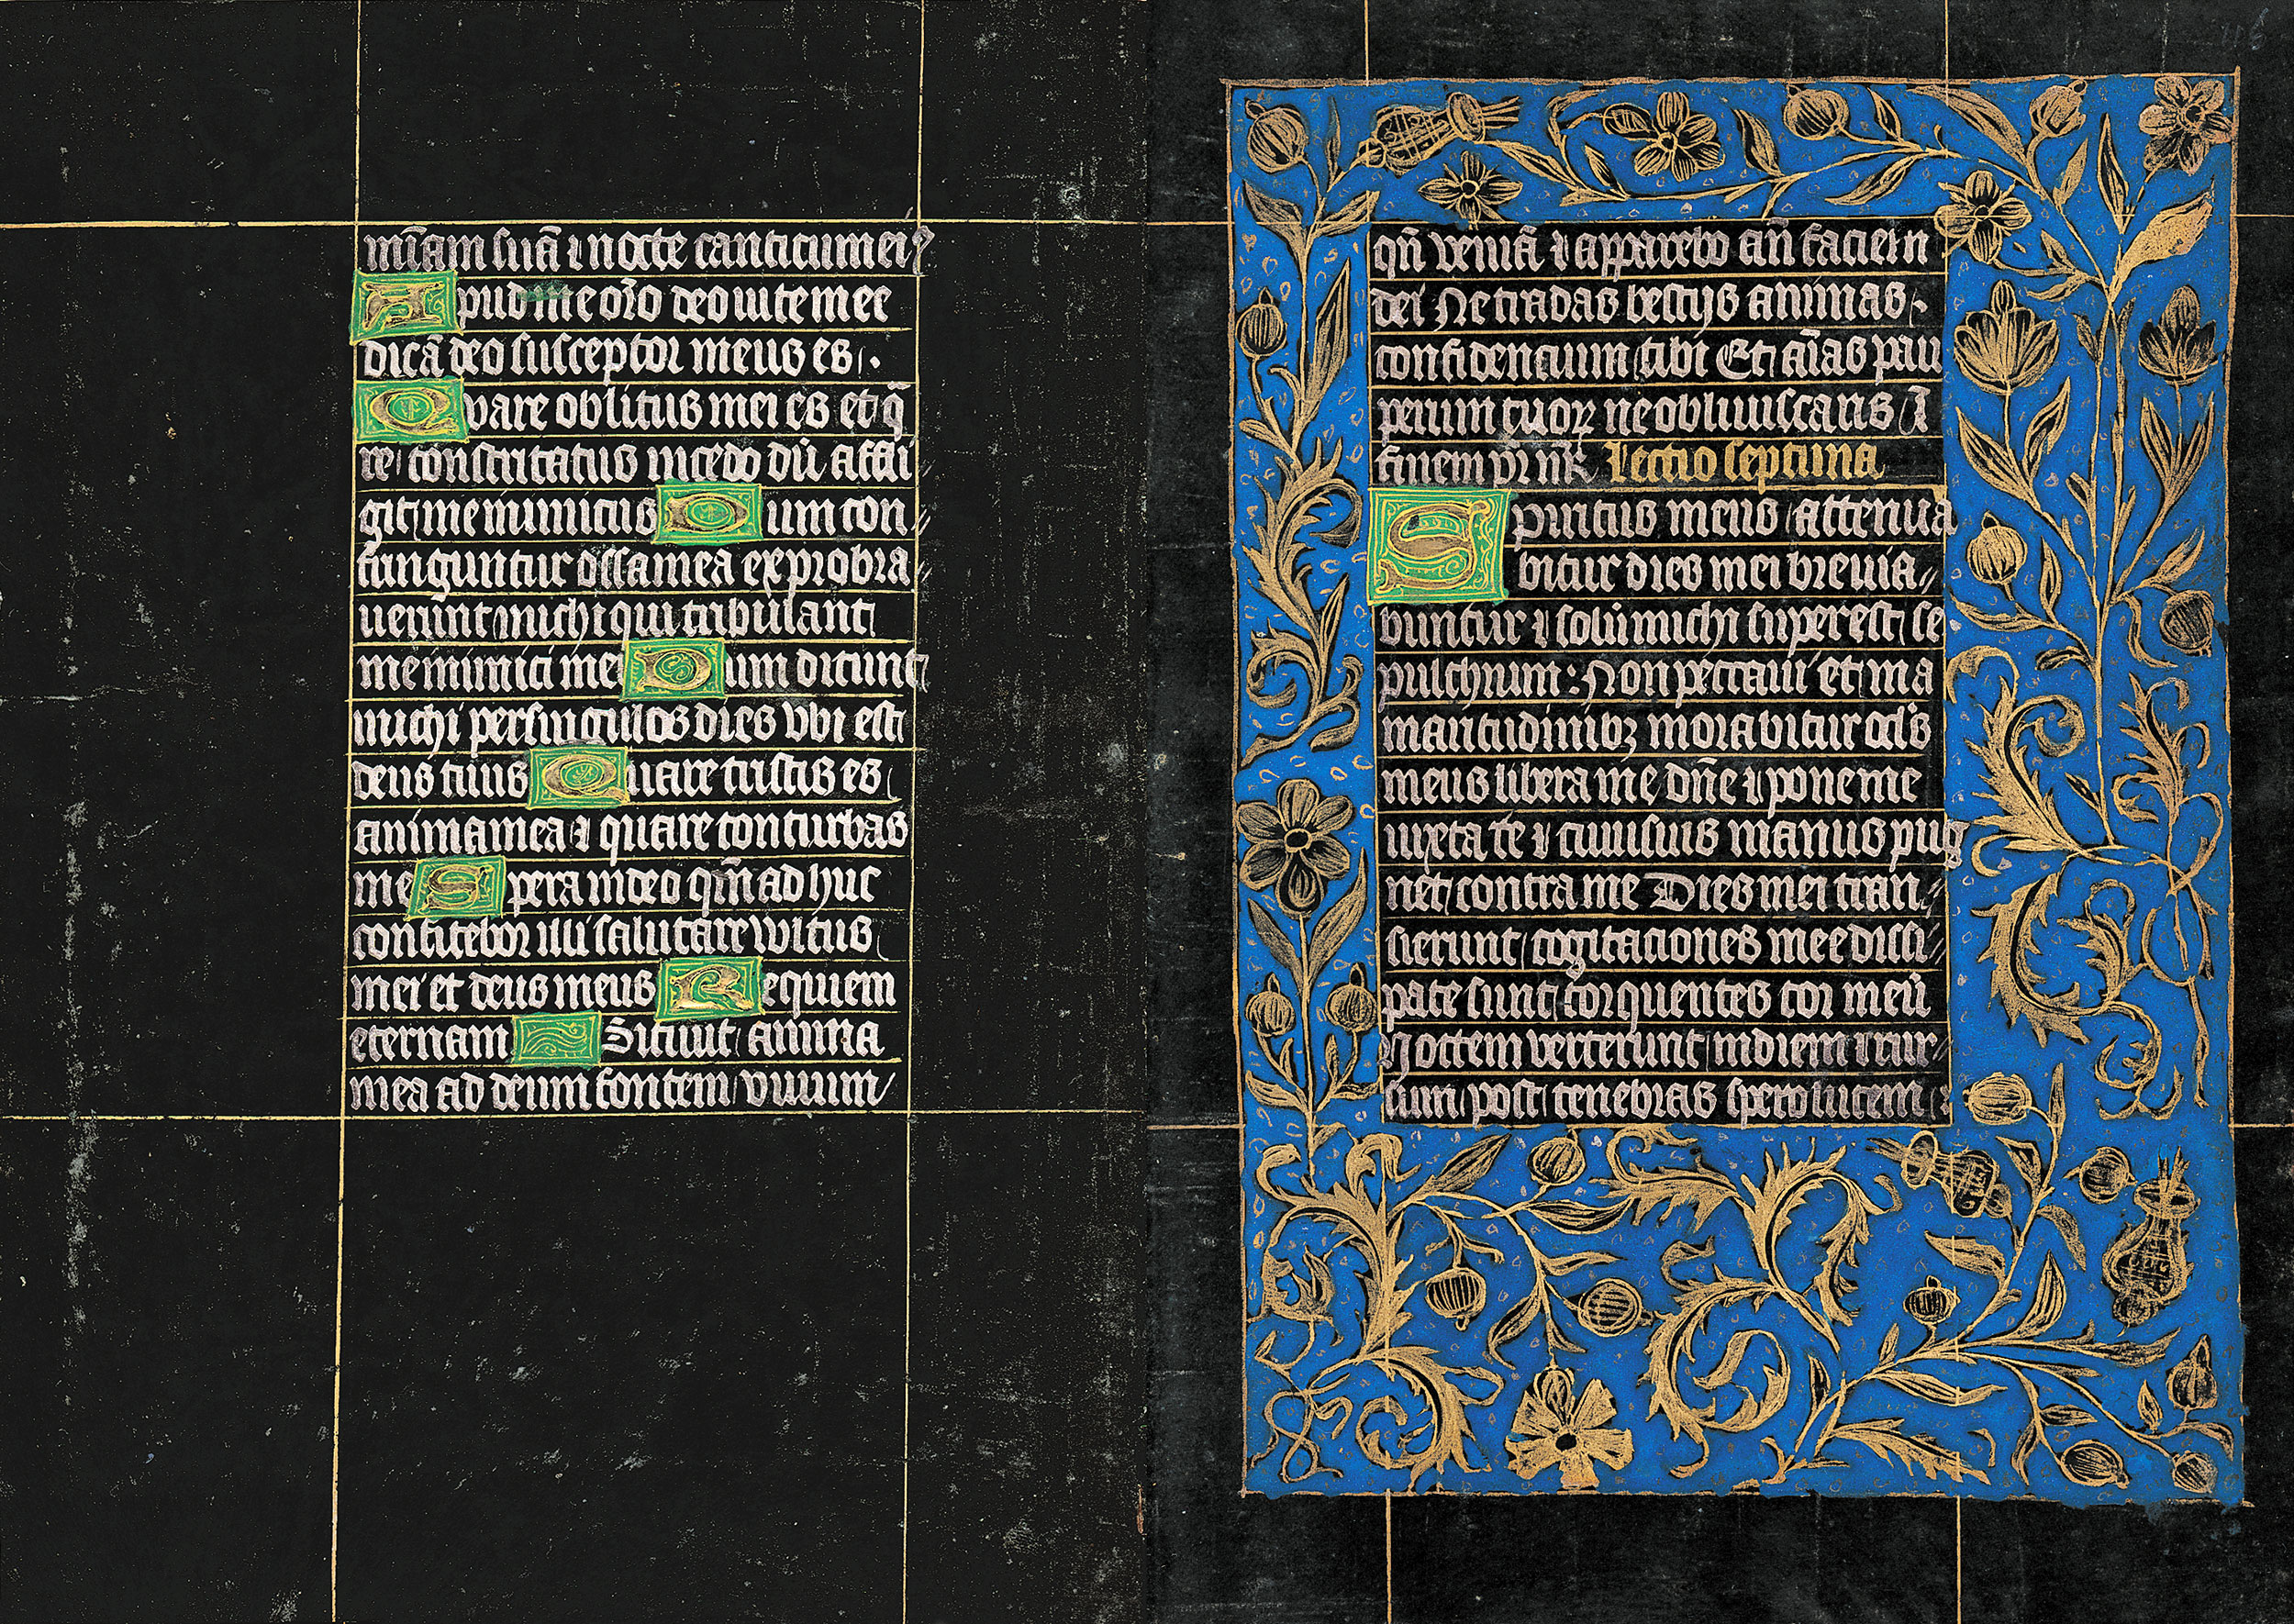 mīam suā ⁊ nocte canticum ei⁹
Apud me oro deo vite mee
dicā deo susceptor meus es.
Quare oblitus mei es et q̄
re contristatus incedo dū affli
git me inimicus Dum con
funguntur ossa mea exprobra
uerunt michi qui tribulant
me inimici mei Dum dicunt
michi per singulos dies vbi est
deus tuus Quare tristis es
anima mea ⁊ quare conturbas
me Spera in deo qm̄ adhuc
confitebor illi salutare vultus
mei et deus meus Requiem
eternam Sitiuit anima
mea ad deum fontem viuum
qn̄ veniā ⁊ apparebo an̄ faciem
dei Ne tradas bestijs animas.
confidencium tibi Et aīas pau
perum tuoꝝ ne obliuiscaris ī
finem Lectio septima
Spiritus meus attenua
bitur dies mei breuia
buntur ⁊ solū michi superest se
pulchrum: Non peccaui et in a
maritudinibꝫ morabitur ocl's
meus libera me dn̄e ⁊ pone me
iuxta te ⁊ cuiusuis manus pug
net contra me Dies mei tran
sierunt cogitaciones mee dissi
pate sunt torquentes cor meū
Noctem verterunt in diem rur
sum post tenebras spero lucem
116